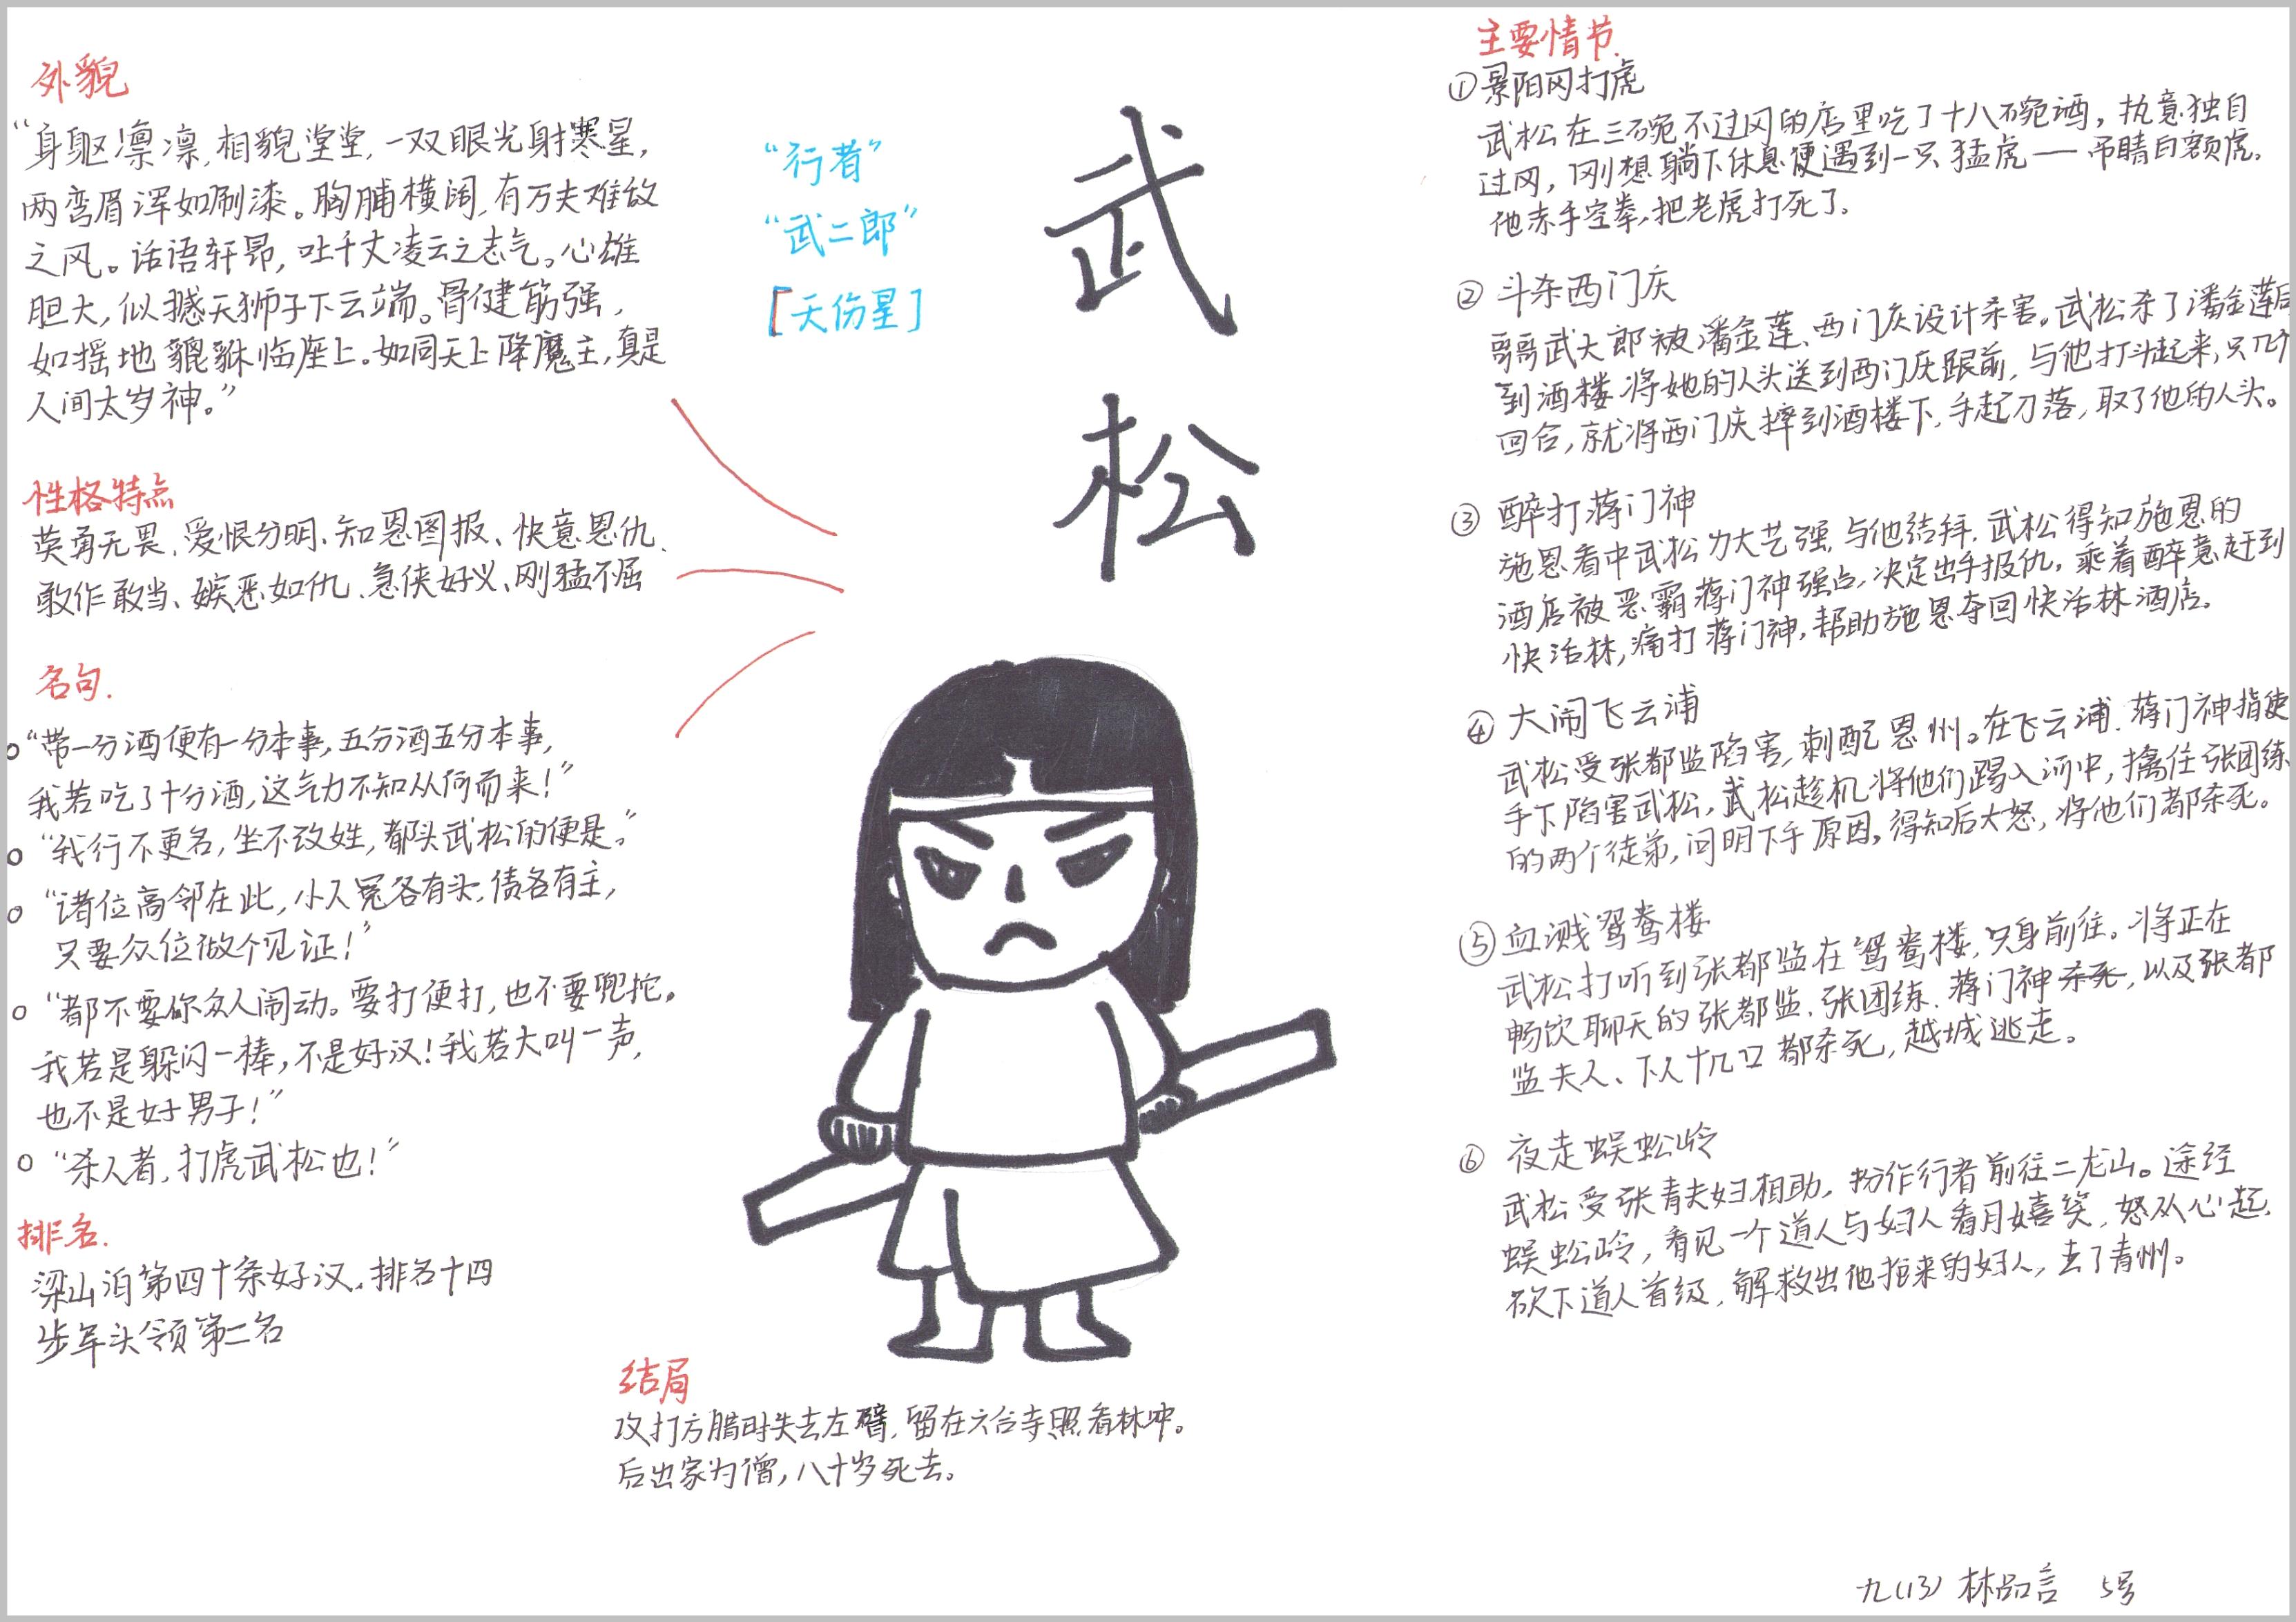 外貌
“身躯凛凛,相貌堂堂,一双眼光射寒星,
两弯眉浑如刷漆。胸脯横阔,有万夫难敌
之风。话语轩昂,吐千丈凌云之志气。心雄
胆大,似撼天狮子下云端。骨健筋强,
如摇地貔貅临座上。如同天上降魔主,真是
人间太岁神。”
性格特点
英勇无畏、爱恨分明、知恩图报、快意恩仇、
敢作敢当、嫉恶如仇、急侠好义、刚猛不屈
名句.
“带一分酒便有一分本事,五分酒五分本事,
我若吃了十分酒,这气力不知从何而来!”
“我行不更名,坐不改姓,都头武松的便是。”
“诸位高邻在此,小人冤各有头,债各有主,
只要众位做个见证!”
“都不要你众人闹动。要打便打,也不要兜拕。
我若是躲闪一棒,不是好汉!我若大叫一声,
也不是好男子!”
“杀人者,打虎武松也!”
排名.
梁山泊第四十条好汉.排名十四
步军头领第二名
“行者”
“武二郎”
[天伤星]
武
松
结局
攻打方腊时失去左臂,留在六合寺照看林冲。
后出家为僧,八十岁死去。
主要情节.
①景阳冈打虎
武松在三碗不过冈的店里吃了十八碗酒,执意独自
过冈,刚想躺下休息便遇到一只猛虎——吊睛白额虎.
他赤手空拳,把老虎打死了。
② 斗杀西门庆
哥哥武大郎被潘金莲、西门庆设计杀害。武松杀了潘金莲后
到酒楼将她的人头送到西门庆跟前,与他打斗起来,只几个
回合,就将西门庆摔到酒楼下,手起刀落,取了他的人头。
③ 醉打蒋门神
施恩看中武松力大艺强,与他结拜.武松得知施恩的
酒店被恶霸蒋门神强占,决定出手报仇,乘着醉意赶到
快活林,痛打蒋门神,帮助施恩夺回快活林酒店。
④ 大闹飞云浦
武松受张都监陷害,刺配恩州。在飞云浦.蒋门神指使
手下陷害武松,武松趁机将他们踢入河中,擒住张团练
的两个徒弟,问明下手原因,得知后大怒,将他们都杀死。
⑤血溅鸳鸯楼
武松打听到张都监在鸳鸯楼,只身前往。将正在
畅饮聊天的张都监、张团练、蒋门神杀死,以及张都
监夫人、下人十几口都杀死,越城逃走。
⑥ 夜走蜈蚣岭
武松受张青夫妇相助,扮作行者前往二龙山。途经
蜈蚣岭,看见一个道人与妇人看月嬉笑,怒从心起,
砍下道人首级,解救出他掳来的妇人,去了青州。
九(13) 林品言 5号